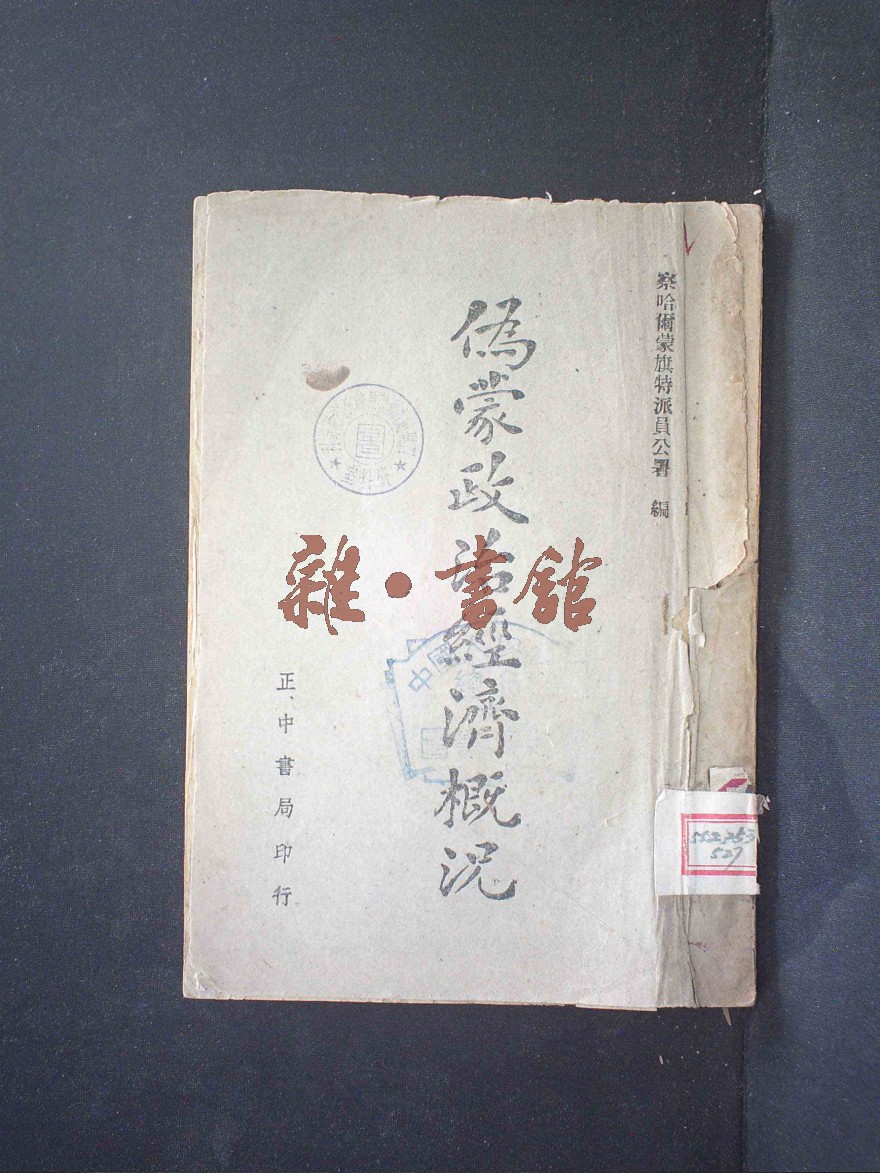 察哈爾蒙旗特派員公署 編
偽蒙政治經濟概況
正中書局印行
雜·書館
資料室
中國
552.2753
527